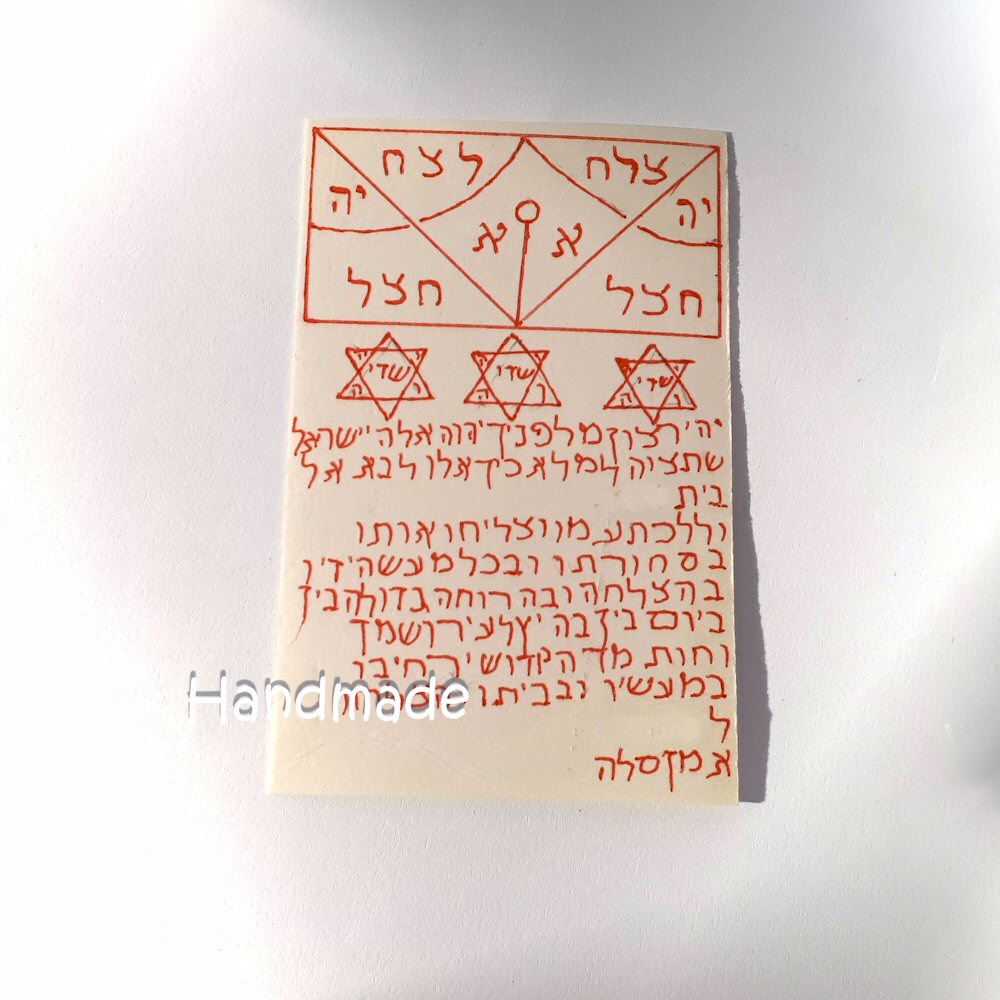 לצח צלח
יה יה
א א
חצל חצל
שדי שדי שדי
יהי רצון מלפניך יהוה אלה יישראל
שתציה למלאכיך אלו לבא אל
בית
וללכת עמו וצליחו אותו
בסחורתו ובכל מעשה ידיו
בהצלחה ובהרוחה גדולה בין
ביום בין בה יץ לעיר ושמך
וחות מך הקדוש ירחיבו
במעשיו ובביתו
ל
אמן סלה
Handmade